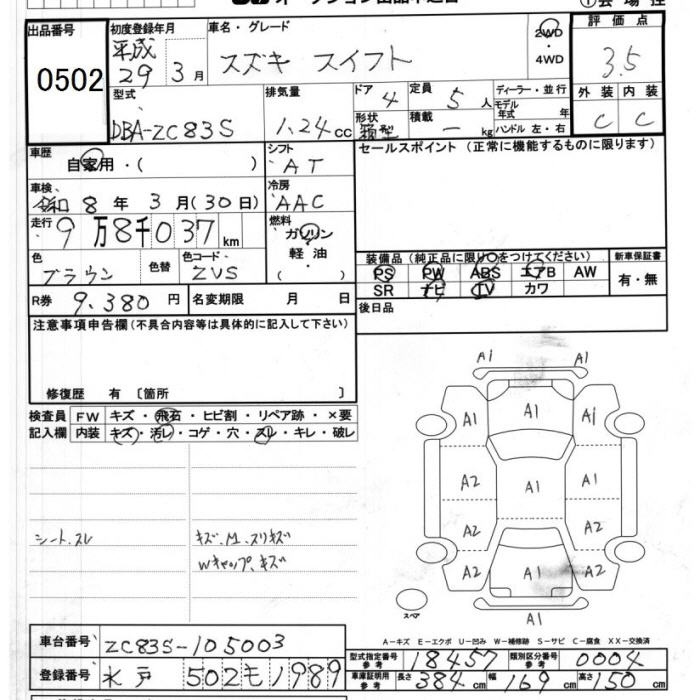 出品番号
0502
初度登録年月
平成
29 3月
車名・グレード
スズキ スイフト
2WD
・4WD
評価点
3.5
型式
DBA-ZC83S
排気量
1.24cc
ドア
4
定員
5人
形状
箱型
積載
ー kg
ディーラー・並行
モデル年式 年
ハンドル 左・右
外装 内装
C C
車歴
自家用・( )
シフト
AT
セールスポイント (正常に機能するものに限ります)
車検
令和8年3月(30日)
冷房
AAC
走行
9万8千037km
燃料
ガソリン
軽油
( )
色
ブラウン
色替
色コード
ZVS
装備品(純正品に限り○をつけてください)
PS PW ABS エアB AW
SR ナビ TV カワ
新車保証書
有・無
R券 9,380円 名変期限 月 日
後日品
注意事項申告欄(不具合内容等は具体的に記入して下さい)
修復歴 有 〔箇所 〕
検査員 FW キズ・飛石・ヒビ割・リペア跡・×要
記入欄 内装 キズ・汚レ・コゲ・穴・スレ・キレ・破レ
A1 A1
A1 A1 A1
A2 A1 A1
A2 A2
A2 A1 A2
A1
シート、スレ
キズ、M、スリキズ
Wキャップ、キズ
スペア
A-キズ E-エクボ U-凹み W-補修跡 S-サビ C-腐食 XX-交換済
車台番号 ZC83S-105003
登録番号 水戸 502 も 1989
型式指定番号 参考 18457 類別区分番号 参考 0004
車庫証明用 参考 長さ 384cm 幅 169cm 高さ 150cm